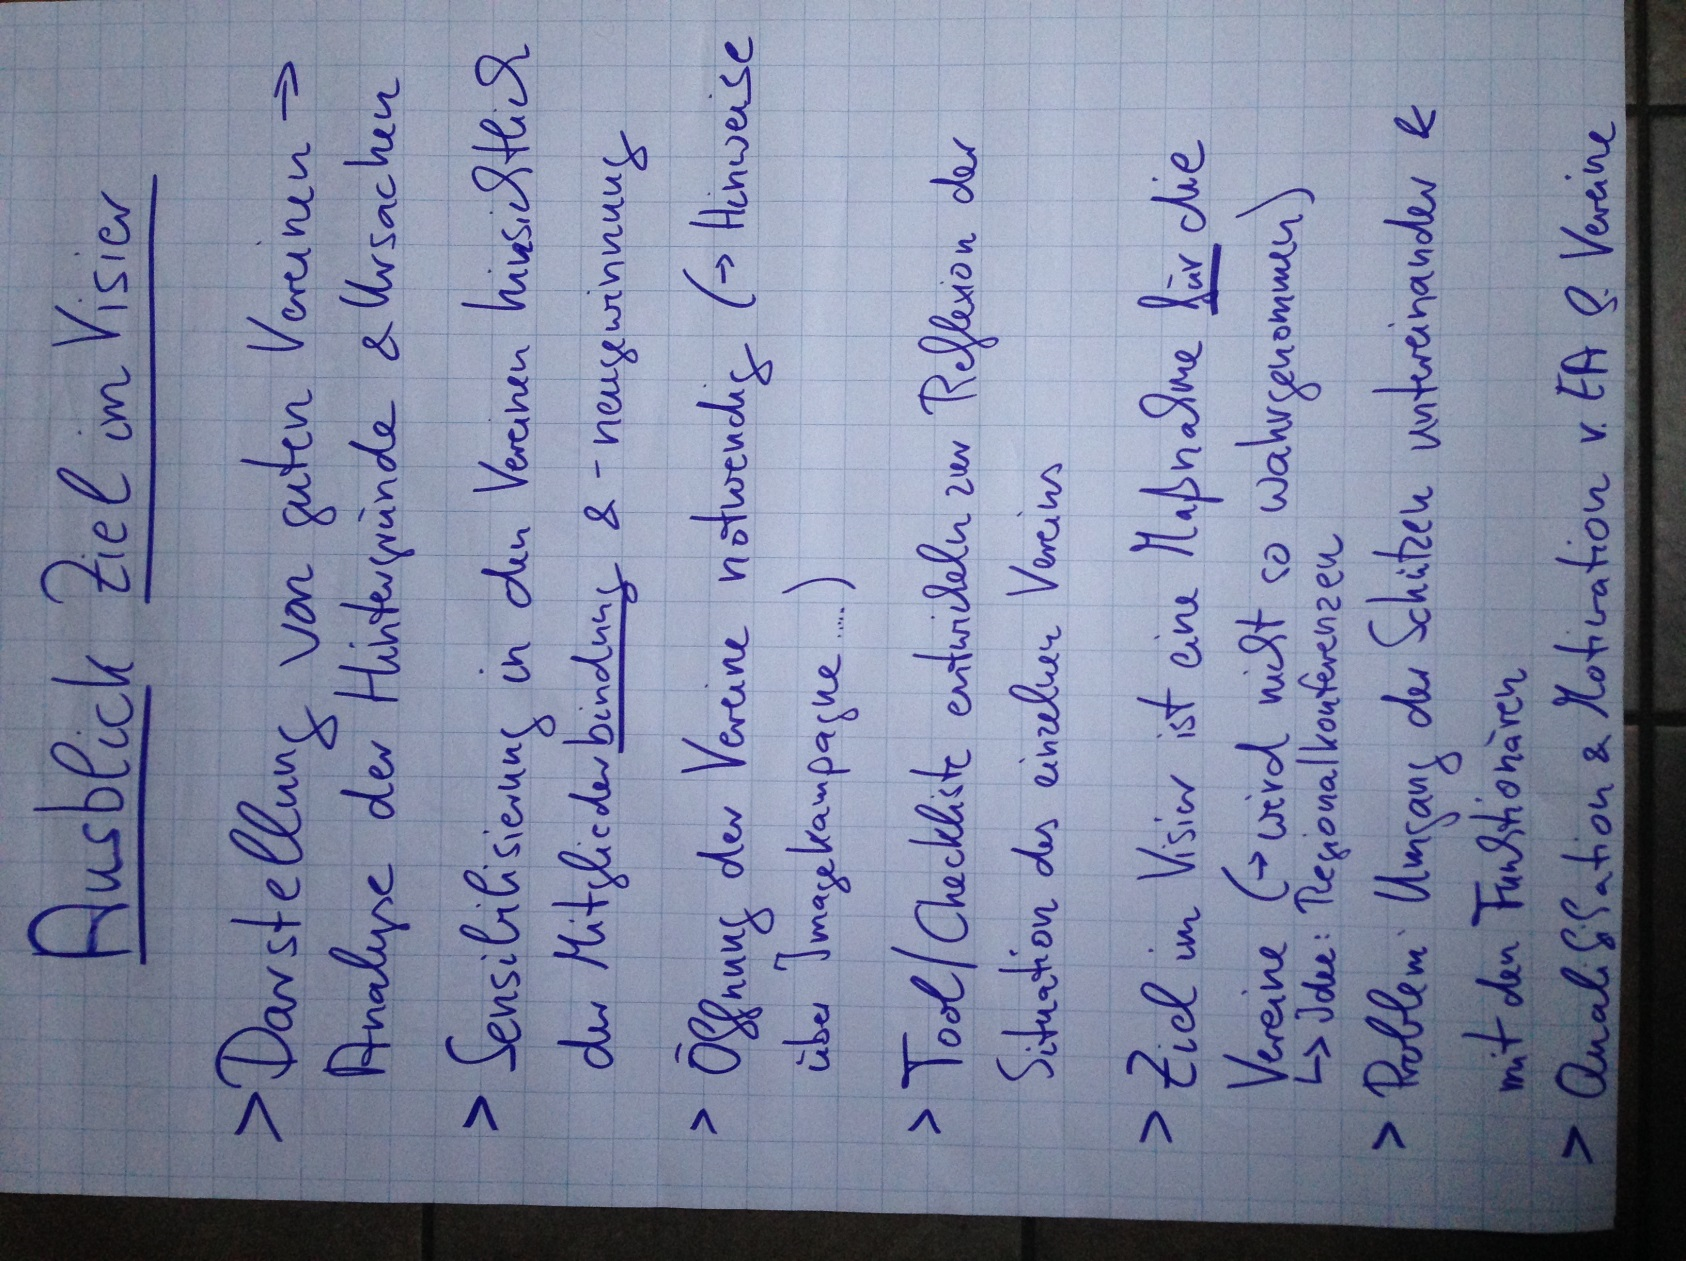 Ausblick Ziel im Visier
> Darstellung von guten Vereinen ⇒
Analyse der Hintergründe & Ursachen
> Sensibilisierung in den Vereinen hinsichtlich
der Mitgliederbindung & -neugewinnung
> Öffnung der Vereine notwendig (→ Hinweise
über Imagekampagne.....)
> Tool/Checkliste entwickeln zur Reflexion der
Situation des einzelnen Vereins
> Ziel im Visier ist eine Maßnahme für die
Vereine (→ wird nicht so wahrgenommen)
↳ Idee: Regionalkonferenzen
> Problem: Umgang der Schützen untereinander &
mit den Funktionären
> Qualifikation & Motivation v. EA f. Vereine